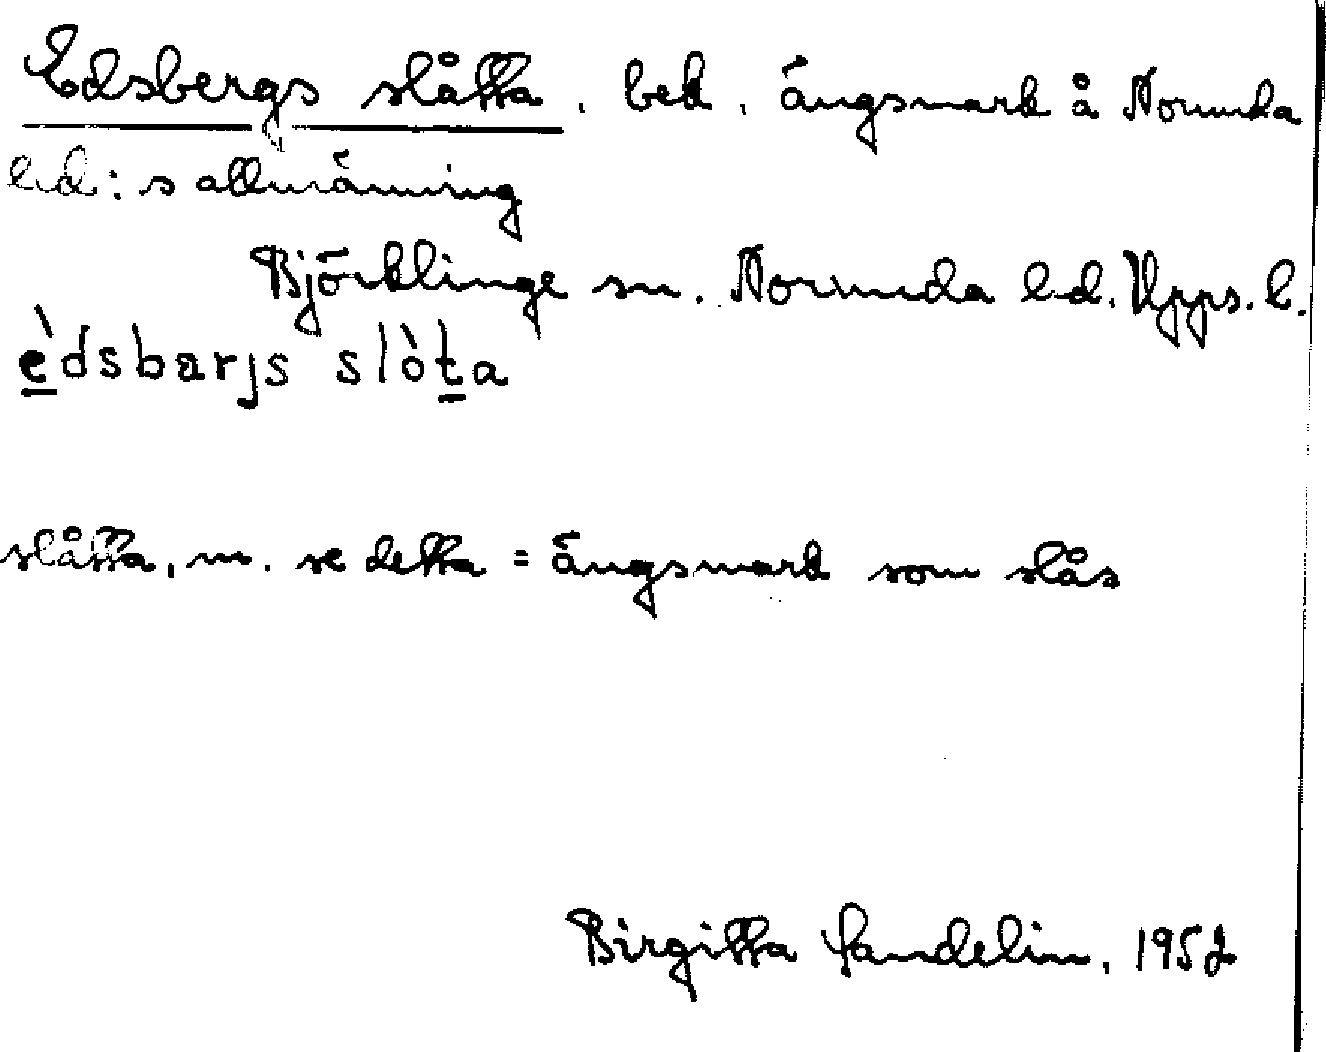 Edsbergs slåtta, bek. ängsmark å Norunda
hd:s allmänning
Björklinge sn. Norunda hd. Upps. l.
è̱dsbarjs slòṯa
slåtta, m. se detta = ängsmark som slås
Birgitta Sandelin, 1952